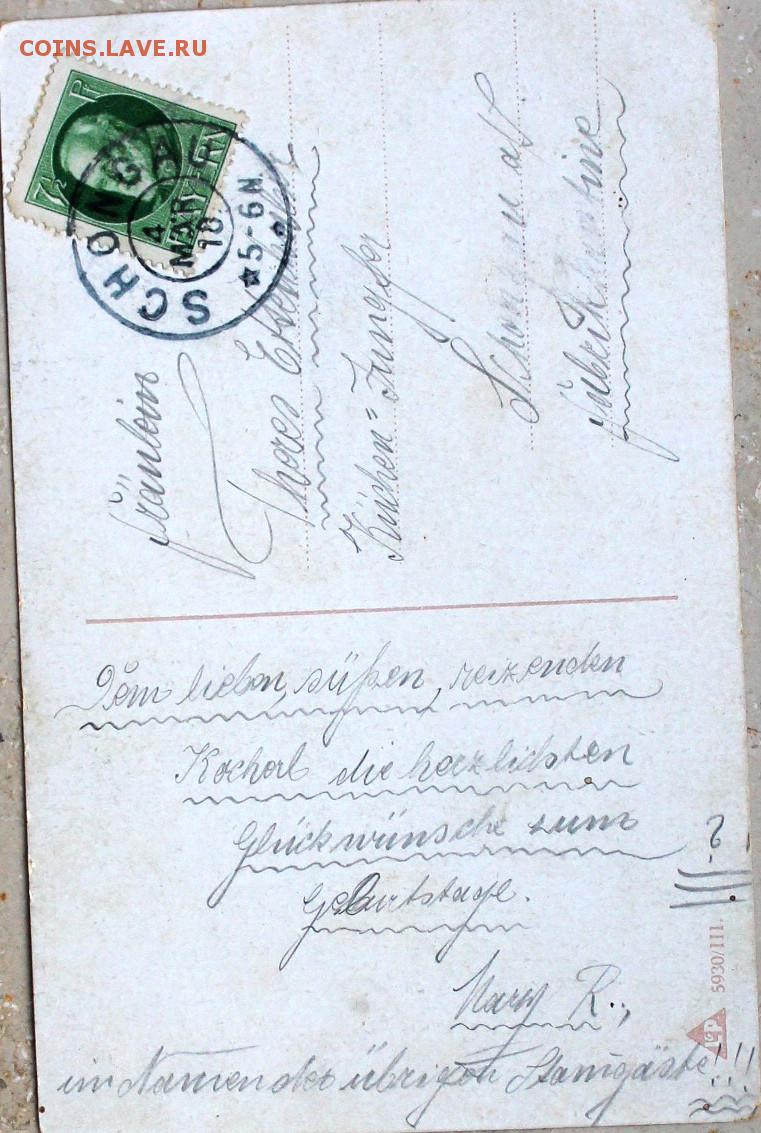 COINS.LAVE.RU
7½ Pf
BAYERN
SCHONGAU
4
MAR
18
* 5-6 N.
Fräulein
Thores
Küchen=Jungfer
Schongau a/L
Fabrik Kantine
Dem lieben, süßen, reizenden
Kocherl die herzlichsten
Glückwünsche zum
Geburtstage.
Mary R..,
im Namen der übrigen Stam̄gäste!!!!
? !
5930/111.